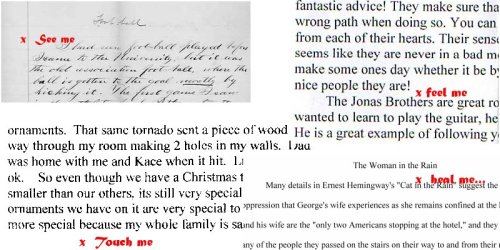 Foot-ball
x See me
I had seen foot-ball played before
I came to the University, but it was
the old association foot-ball, where the
ball is gotten to the goal mostly by
kicking it. The first game I saw
fantastic advice! They make sure tha
wrong path when doing so. You can
from each of their hearts. Their sense
seems like they are never in a bad m
make some ones day whether it be b
nice people they are!
x feel me
The Jonas Brothers are great ro
wanted to learn to play the guitar, he
He is a great example of following y
ornaments. That same tornado sent a piece of wood
way through my room making 2 holes in my walls. Dad
was home with me and Kace when it hit.
ok. So even though we have a Christmas t
smaller than our others, its still very special
ornaments we have on it are very special to
more special because my whole family is sa
x Touch me
The Woman in the Rain
x heal me...
Many details in Ernest Hemingway's "Cat in the Rain" suggest the
oppression that George's wife experiences as she remains confined at the
and his wife are the "only two Americans stopping at the hotel," and they
any of the people they passed on the stairs on their way to and from their